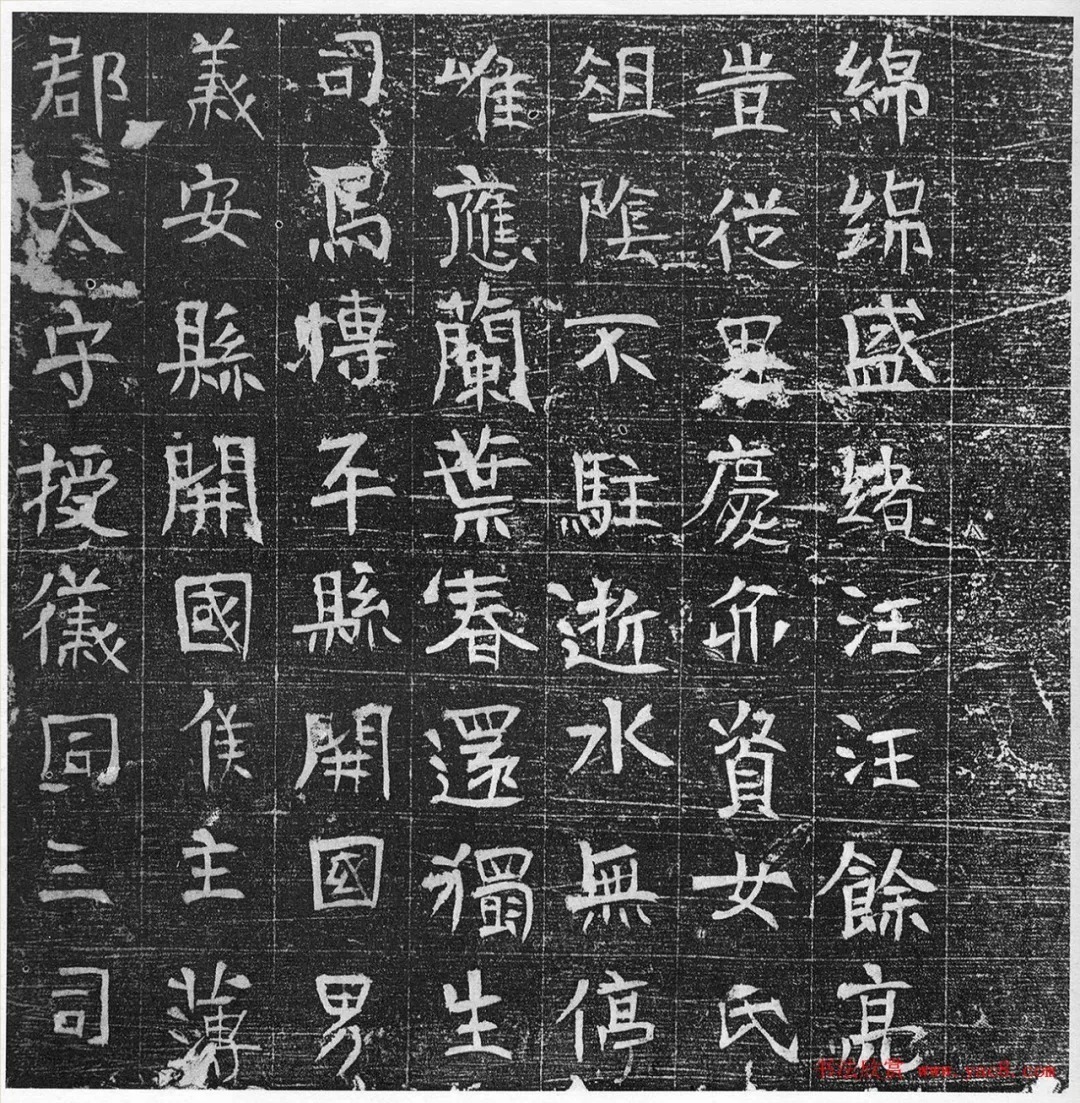 綿綿盛緒汪汪餘亮
豈從慶亦資女氏
俎陰不駐逝水無停
唯應蘭葉春還獨生
司馬博平縣開國男
義安縣開國侯主薄
郡太守授儀同三司
书法欣赏 www.yac8.com